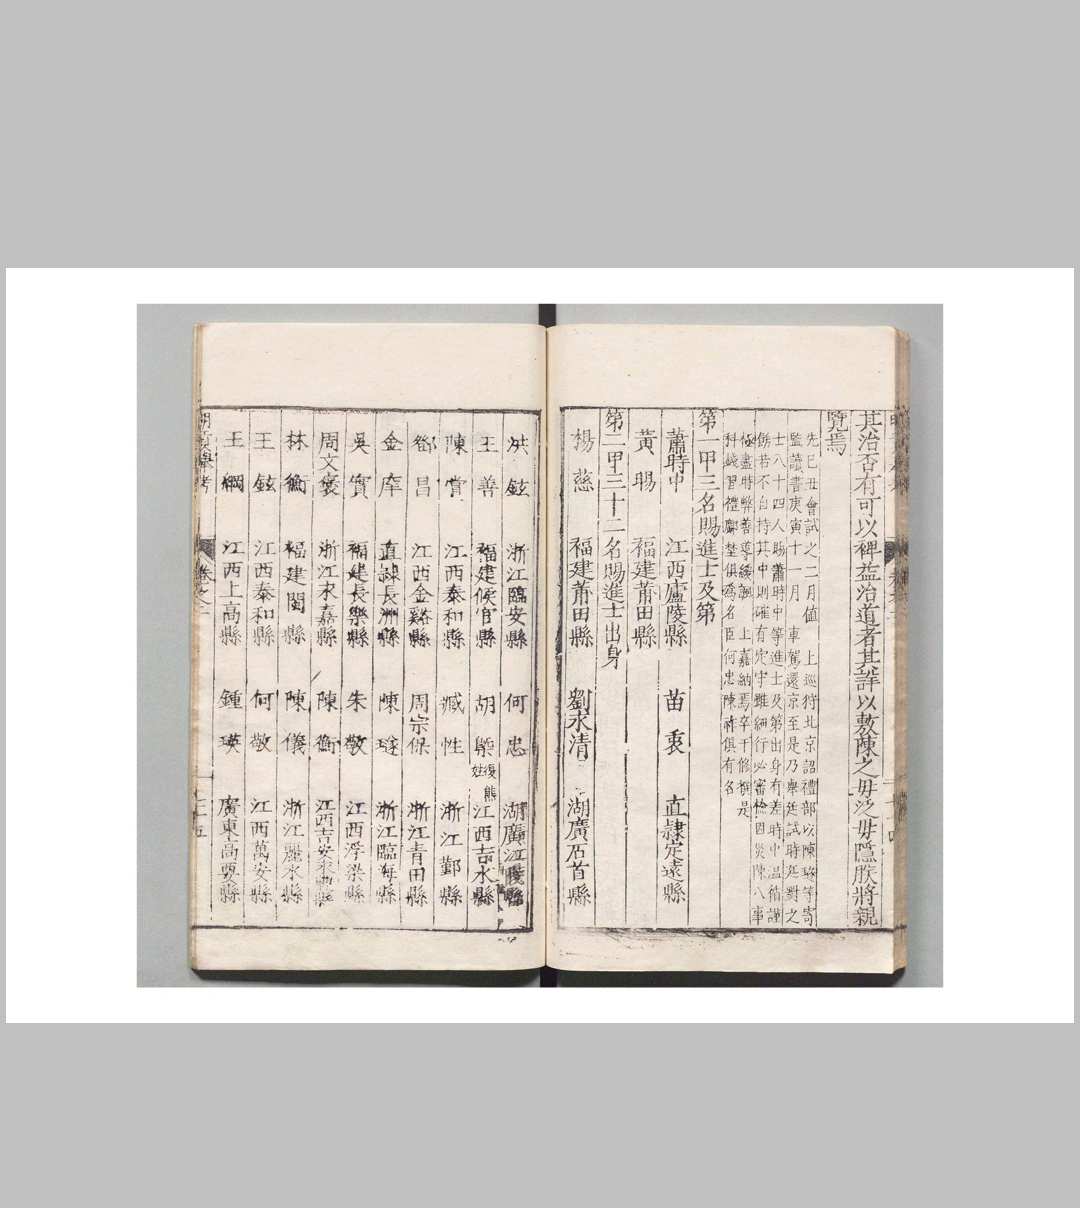 其治否有可以裨益治道者其詳以敷陳之毋泛毋隱朕將親
覽焉
先己丑會試之二月值 上巡狩北京詔禮部以陳璲等寄
監讀書庚寅十一月 車駕還京至是乃舉廷試時廷對之
士八十四人賜蕭時中等進士及第出身有差時中温循謹
飭若不自持其中則確有定守雖細行必審檢因災陳八事
極盡時弊善導緩諷 上嘉納焉卒于修撰是
科錢習禮 俱爲名臣何忠陳祚俱有名
第一甲三名賜進士及第
蕭時中 江西廬陵縣 苗衷 直隸定遠縣
黃暘 福建莆田縣
第二甲三十二名賜進士出身
楊慈 福建莆田縣 劉永清 湖廣石首縣
洪鉉 浙江臨安縣 何忠 湖廣江陵縣
王善 福建候官縣 胡 復姓熊 江西吉水縣
陳賞 江西泰和縣 臧性 浙江鄞縣
鄧昌 江西金谿縣 周宗保 浙江青田縣
金庠 直隸長洲縣 陳璲 浙江臨海縣
吳實 福建長樂縣 朱敬 江西浮梁縣
周文褒 浙江永嘉縣 陳衡 江西吉安永 縣
林衡 福建閩縣 陳儀 浙江麗水縣
王鉉 江西泰和縣 何敬 江西萬安縣
王綱 江西上高縣 鍾瑛 廣東高要縣
卷之二 二十五